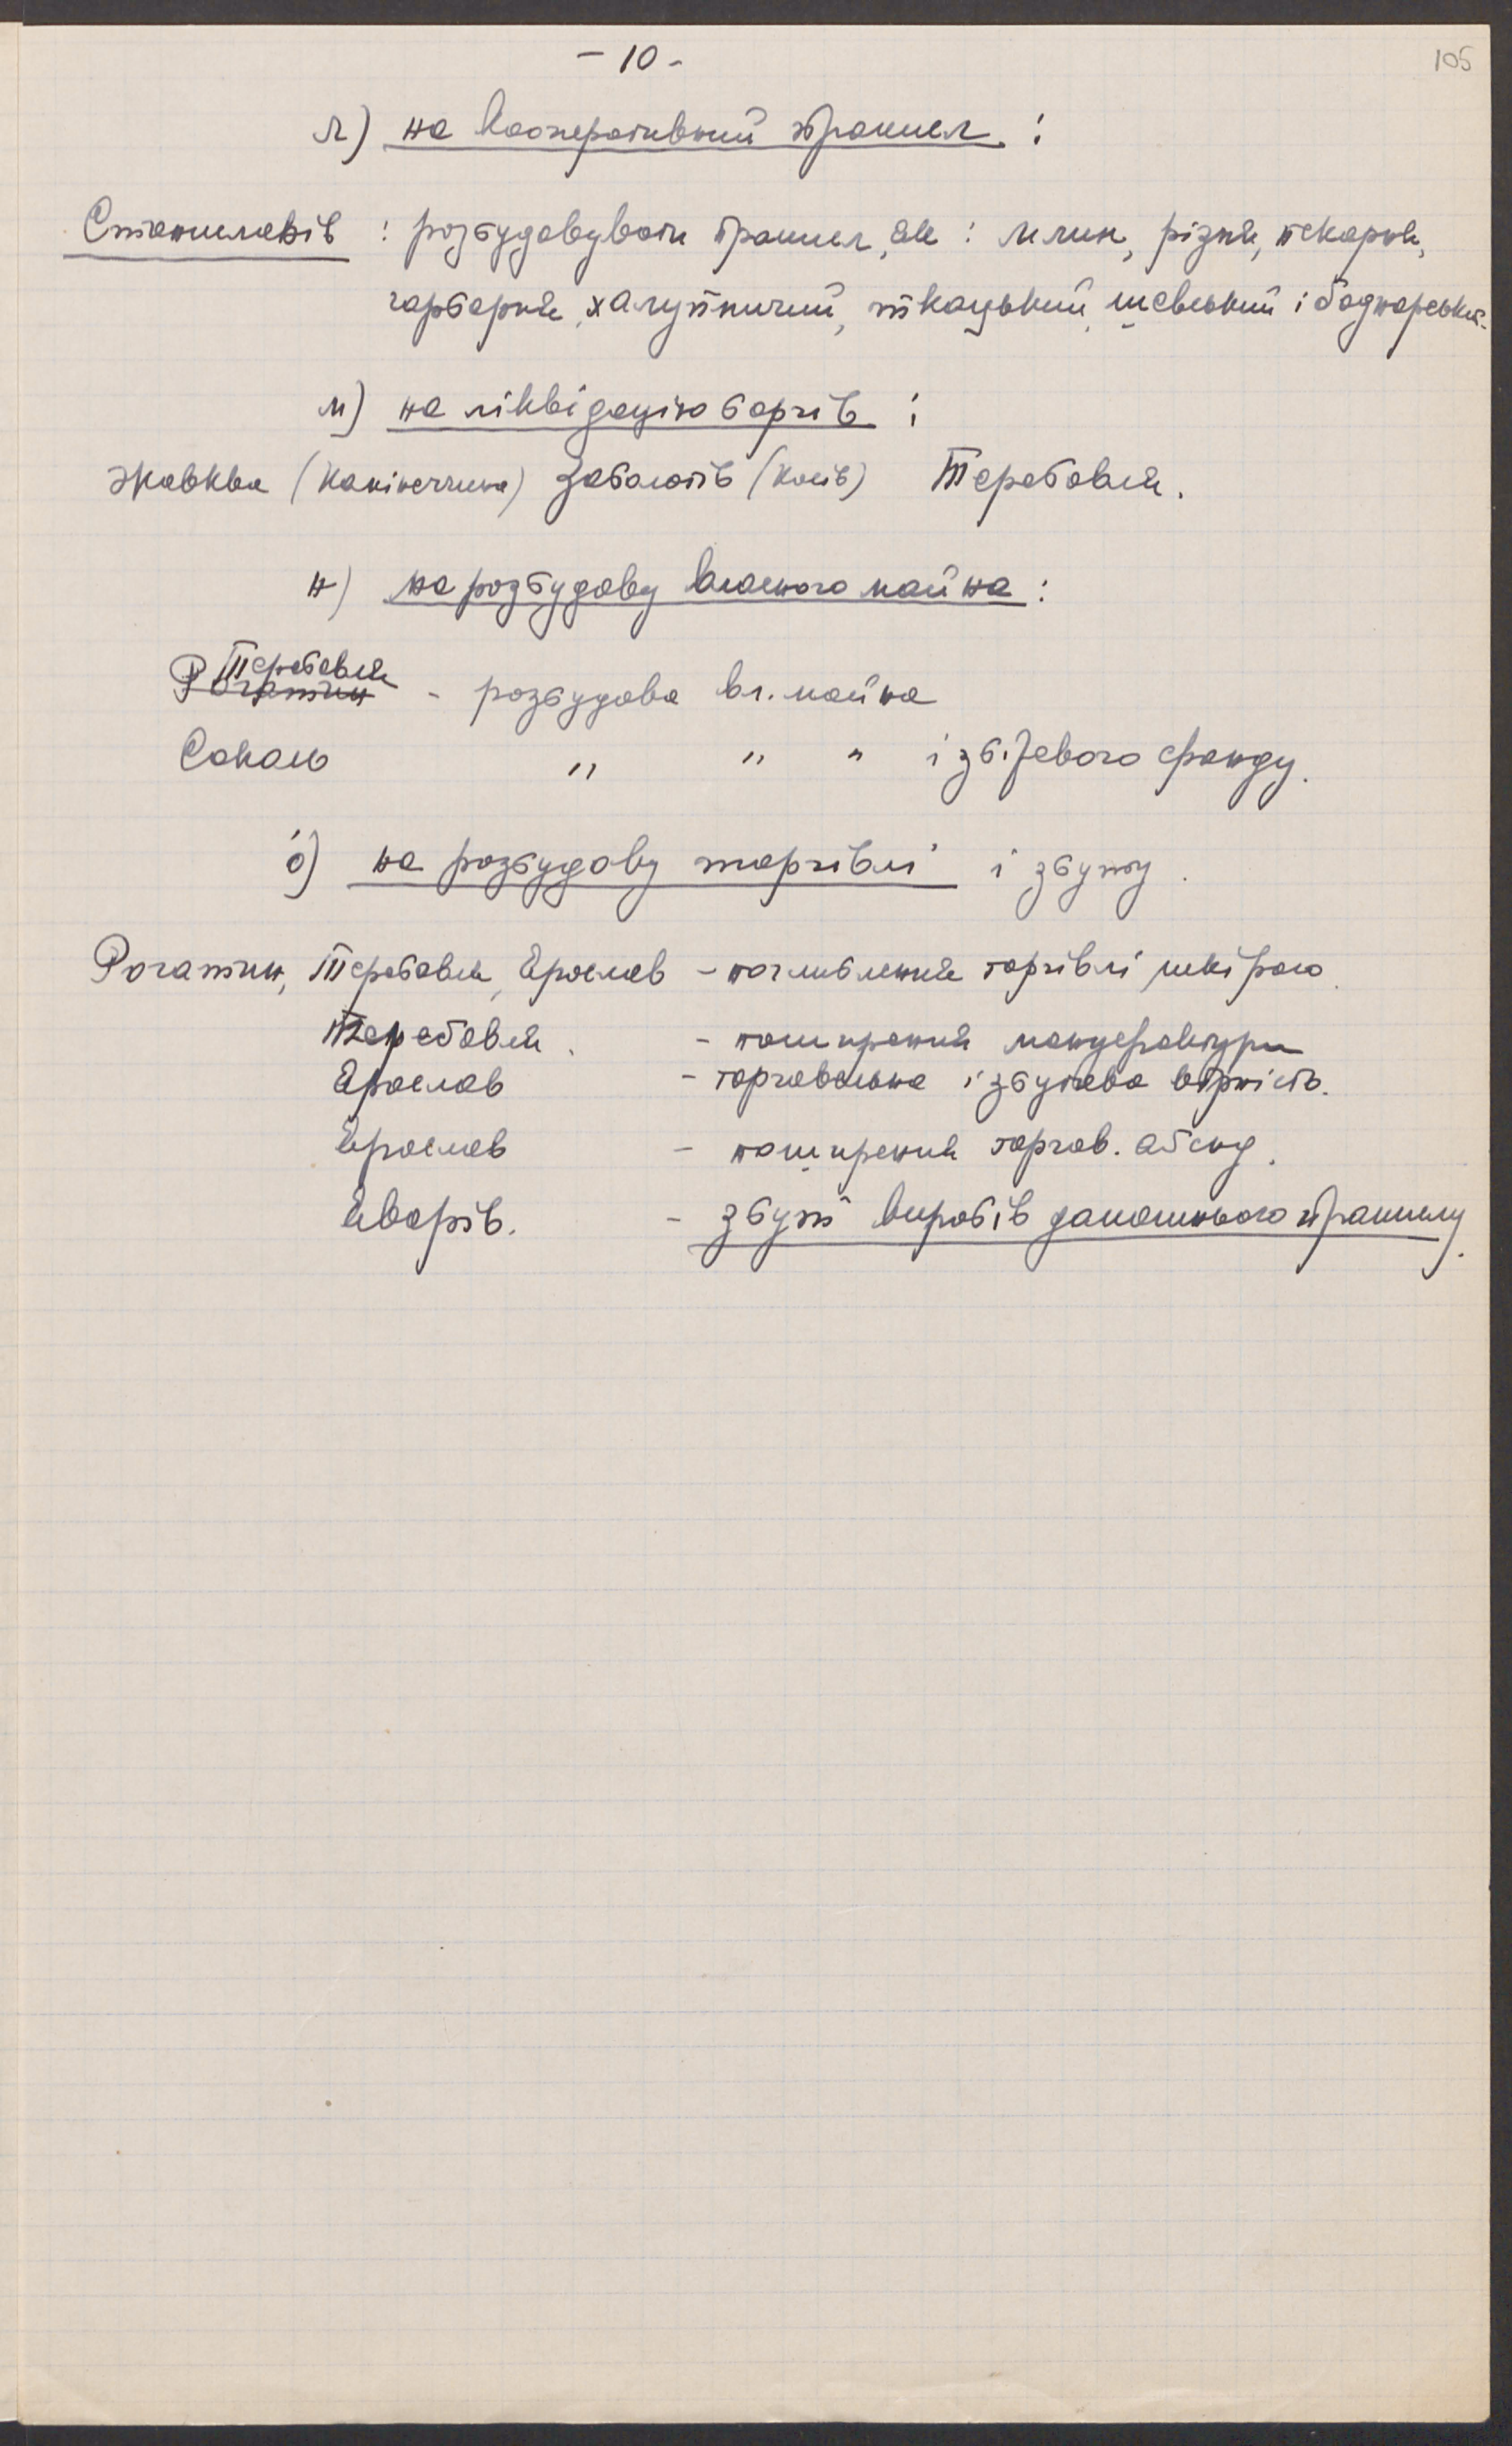 - 10 -
105
л) на кооперативний промисл :
Станиславів : розбудовувати промисл, як : млин, різня, пекарня,
гарбарня, халупничий, ткацький, шевський і боднарський.
м) на ліквідацію боргів :
Жовква (Копінеччина) Заболотів (Косів) Теребовля.
н) на розбудову власного майна :
Теребовля
Рогатин - розбудова вл. майна
Сокаль " " " і зб.євого фонду.
о) на розбудову торгівлі і збуту.
Рогатин, Теребовля, Ярослав - поглиблення торгівлі шкірою.
Теребовля. - поширення мануфактури
Ярослав - торговельна і збутова вірність.
Ярослав - поширення торгов. обсяд.
Яворів. - збут виробів домашнього промислу.